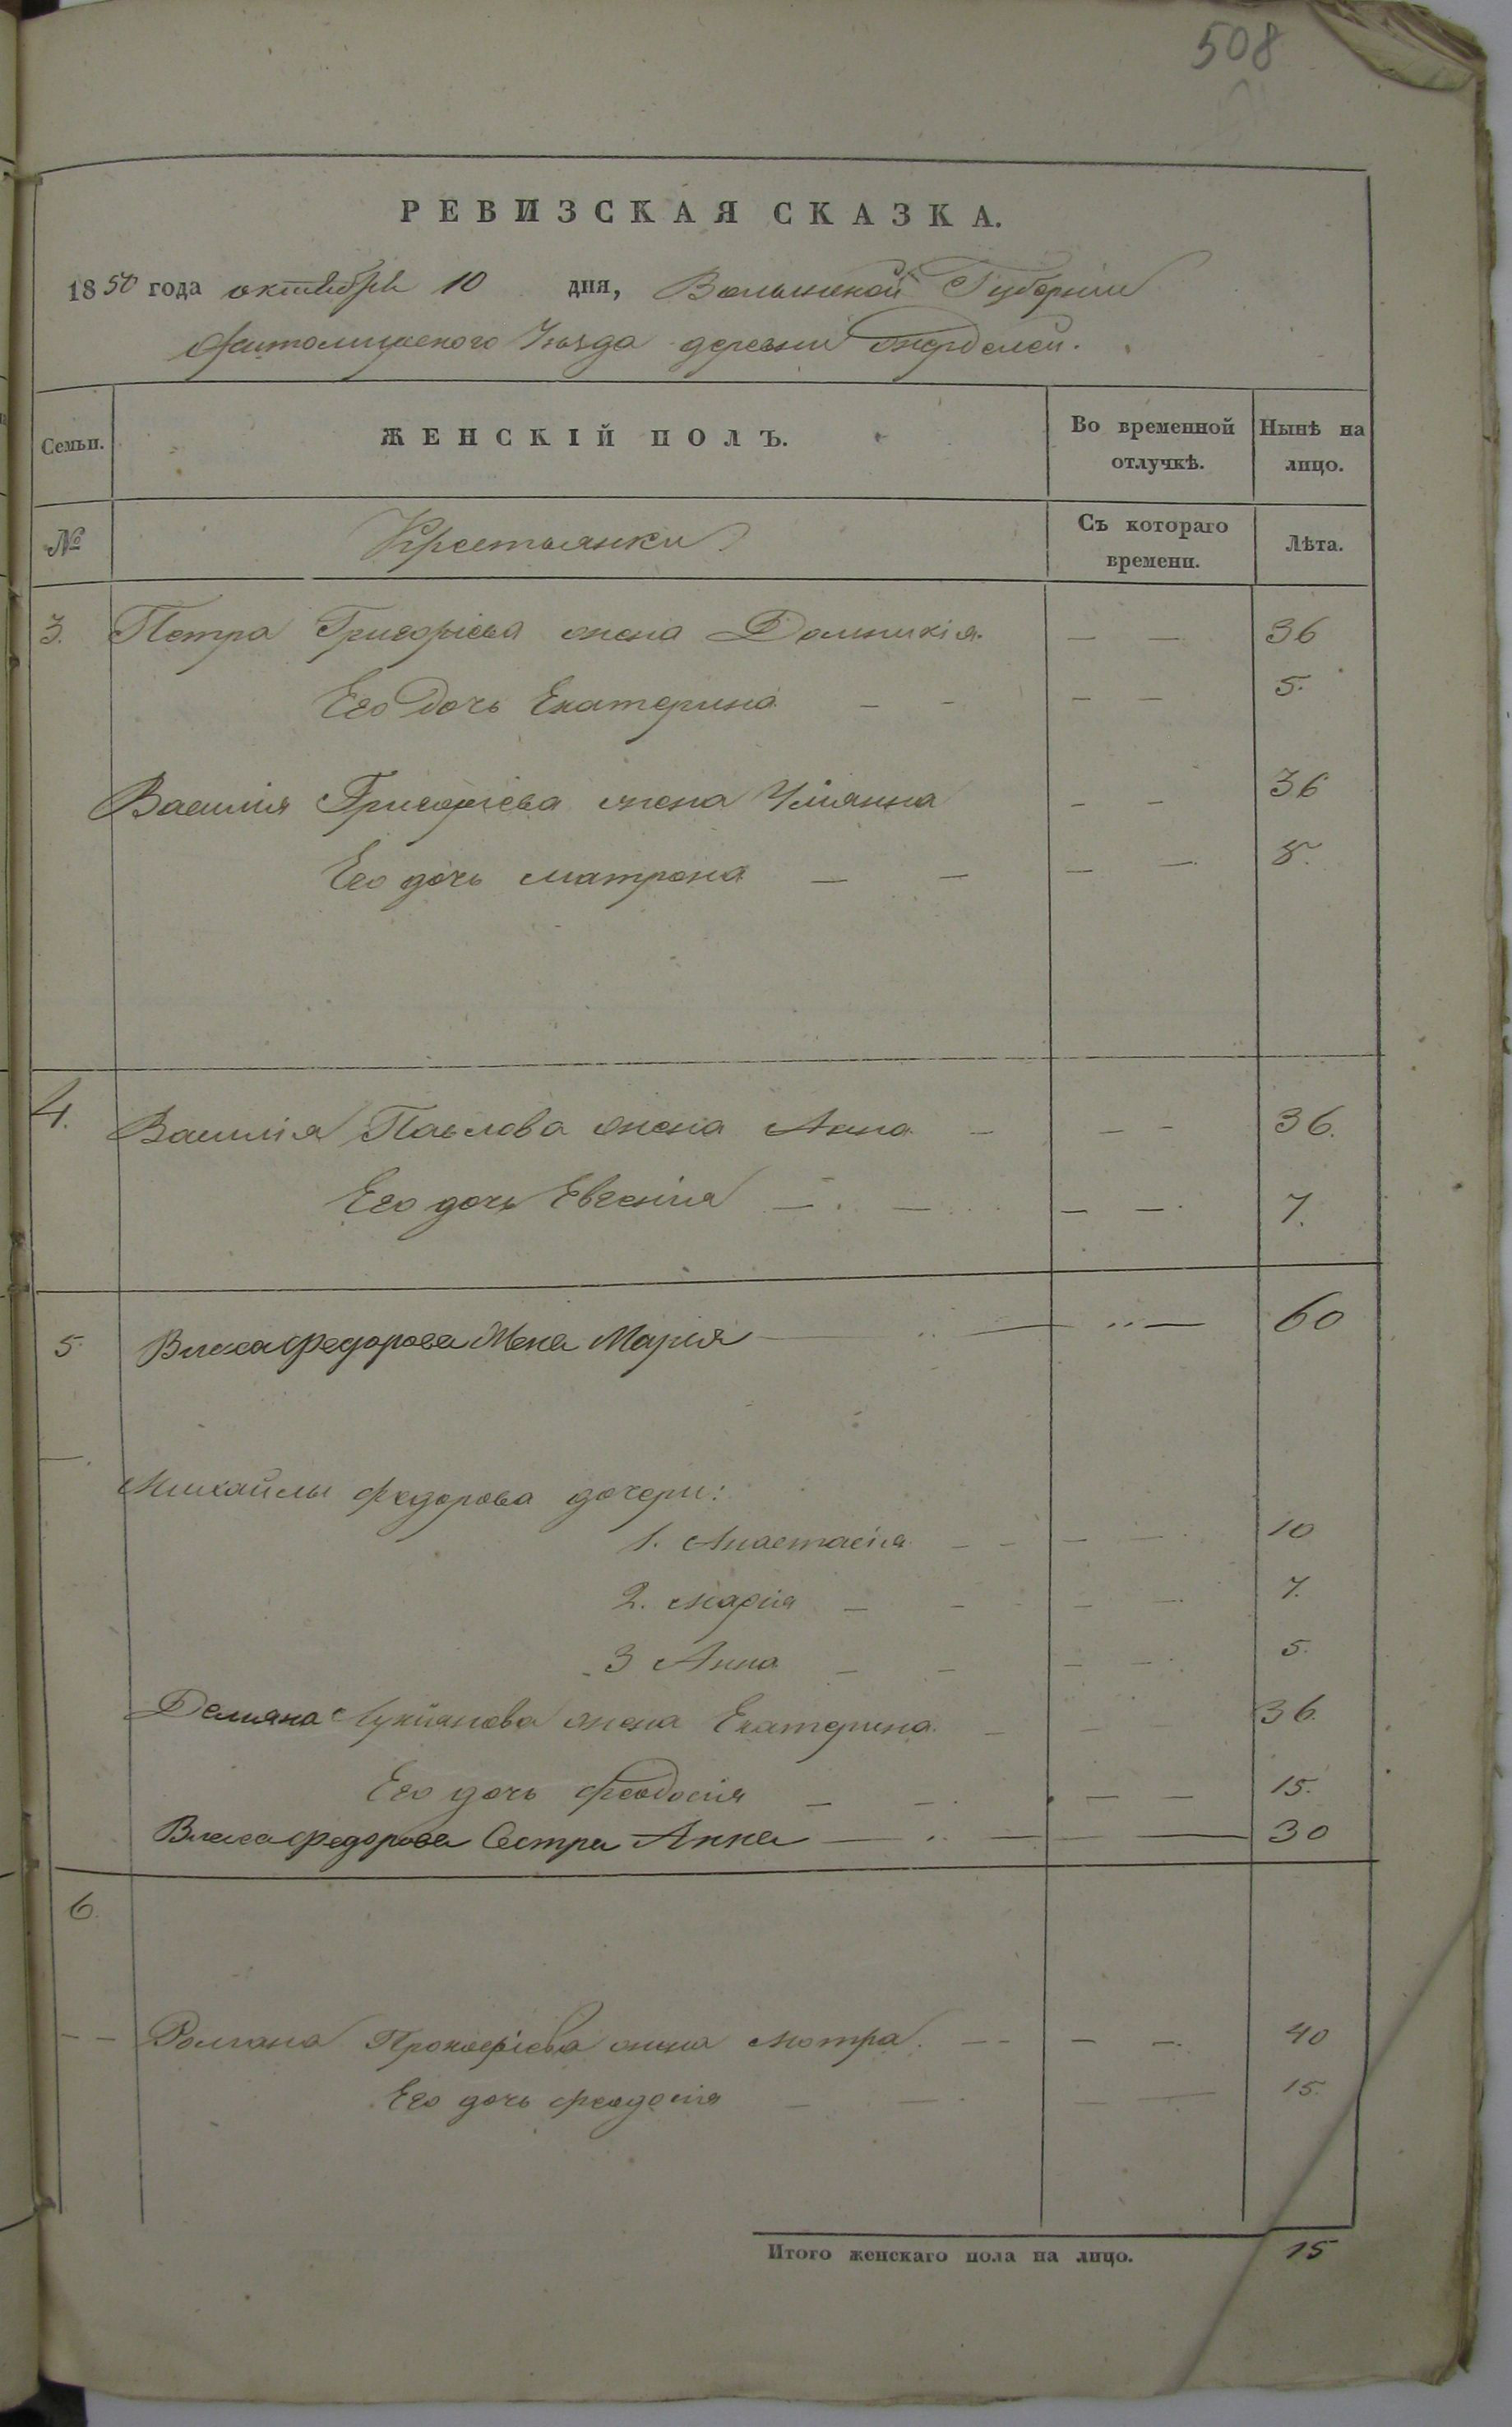 508
РЕВИЗСКАЯ СКАЗКА.
1850 года октября 10 дня, Волынской Губернии
Житомирского Уезда деревни Жерделей.
Семьи. ЖЕНСКІЙ ПОЛЪ. Во временной отлучкѣ. Нынѣ на лицо.
№ Крестьянки Съ котораго времени. Лѣта.
3. Петра Григоріева жена Домникія. — — 36
Его дочь Екатерина — - — — 5.
Василія Григоріева жена Уліянна — — 36
Его дочь Матрона — — — — 8.
4. Василія Павлова жена Анна — — — 36.
Его дочь Евгенія — — — — 7.
5. Власа Федорова Жена Марія — — — 60
Михайлы Федорова дочери:
1. Анастасія — - — — 10
2. Марія — - — — 7.
3 Анна — — — — 5.
Демяна Лукіянова жена Екатерина — — — 36.
Его дочь Феодосія — — — — 15.
Власа Федорова Сестра Анна — — — — 30
6.
— — Романа Прокофіева жена Мотра. — - — — 40
Его дочь Феодосія — — — — 15.
Итого женскаго пола на лицо. 15